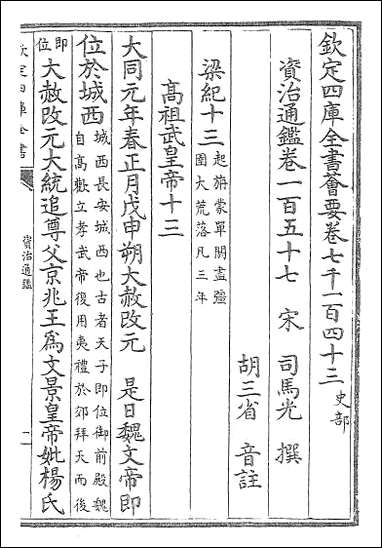 欽定四庫全書會要卷七千一百四十三 史部
資治通鑑卷一百五十七 宋 司馬光 撰
胡三省 音註
梁紀十三 起旃蒙單閼盡彊圉大荒落凡三年
高祖武皇帝十三
大同元年春正月戊申朔大赦改元 是日魏文帝即
位於城西 城西長安城西也古者天子即位御前殿魏自高歡立孝武帝復用夷禮於郊拜天而後
即位 大赦改元大統追尊父京兆王為文景皇帝妣楊氏
欽定四庫全書
資治通鑑
一